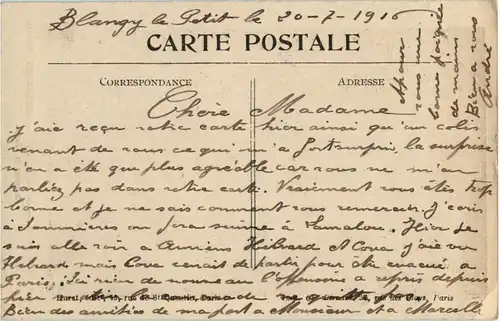 Blangy le Petit le 20-7-1916
CARTE POSTALE
CORRESPONDANCE
ADRESSE
Chère Madame
J'aie reçu votre carte hier ainsi qu'un colis
venant de vous ce qui m'a fort surpris, la surprise
n'en a été que plus agréable car vous ne m'en
parliez pas dans votre carte. Vraiment vous êtes trop
bonne et je ne sais comment vous remercier. J'écris
à Sommières ou fera suivre à Lamalou. Hier je
suis allé voir à Amiens Hébrard et Cova j'aie vu
Hébrard mais Cova venait de partir pour être évacué à
Paris, Ici rien de nouveau l'offensive a repris depuis
hier
Bien des amitiés de ma part à Monsieur et à Marcelle
Paris
A pour
vous une
bonne poignée
de mains
Bien à vous
André